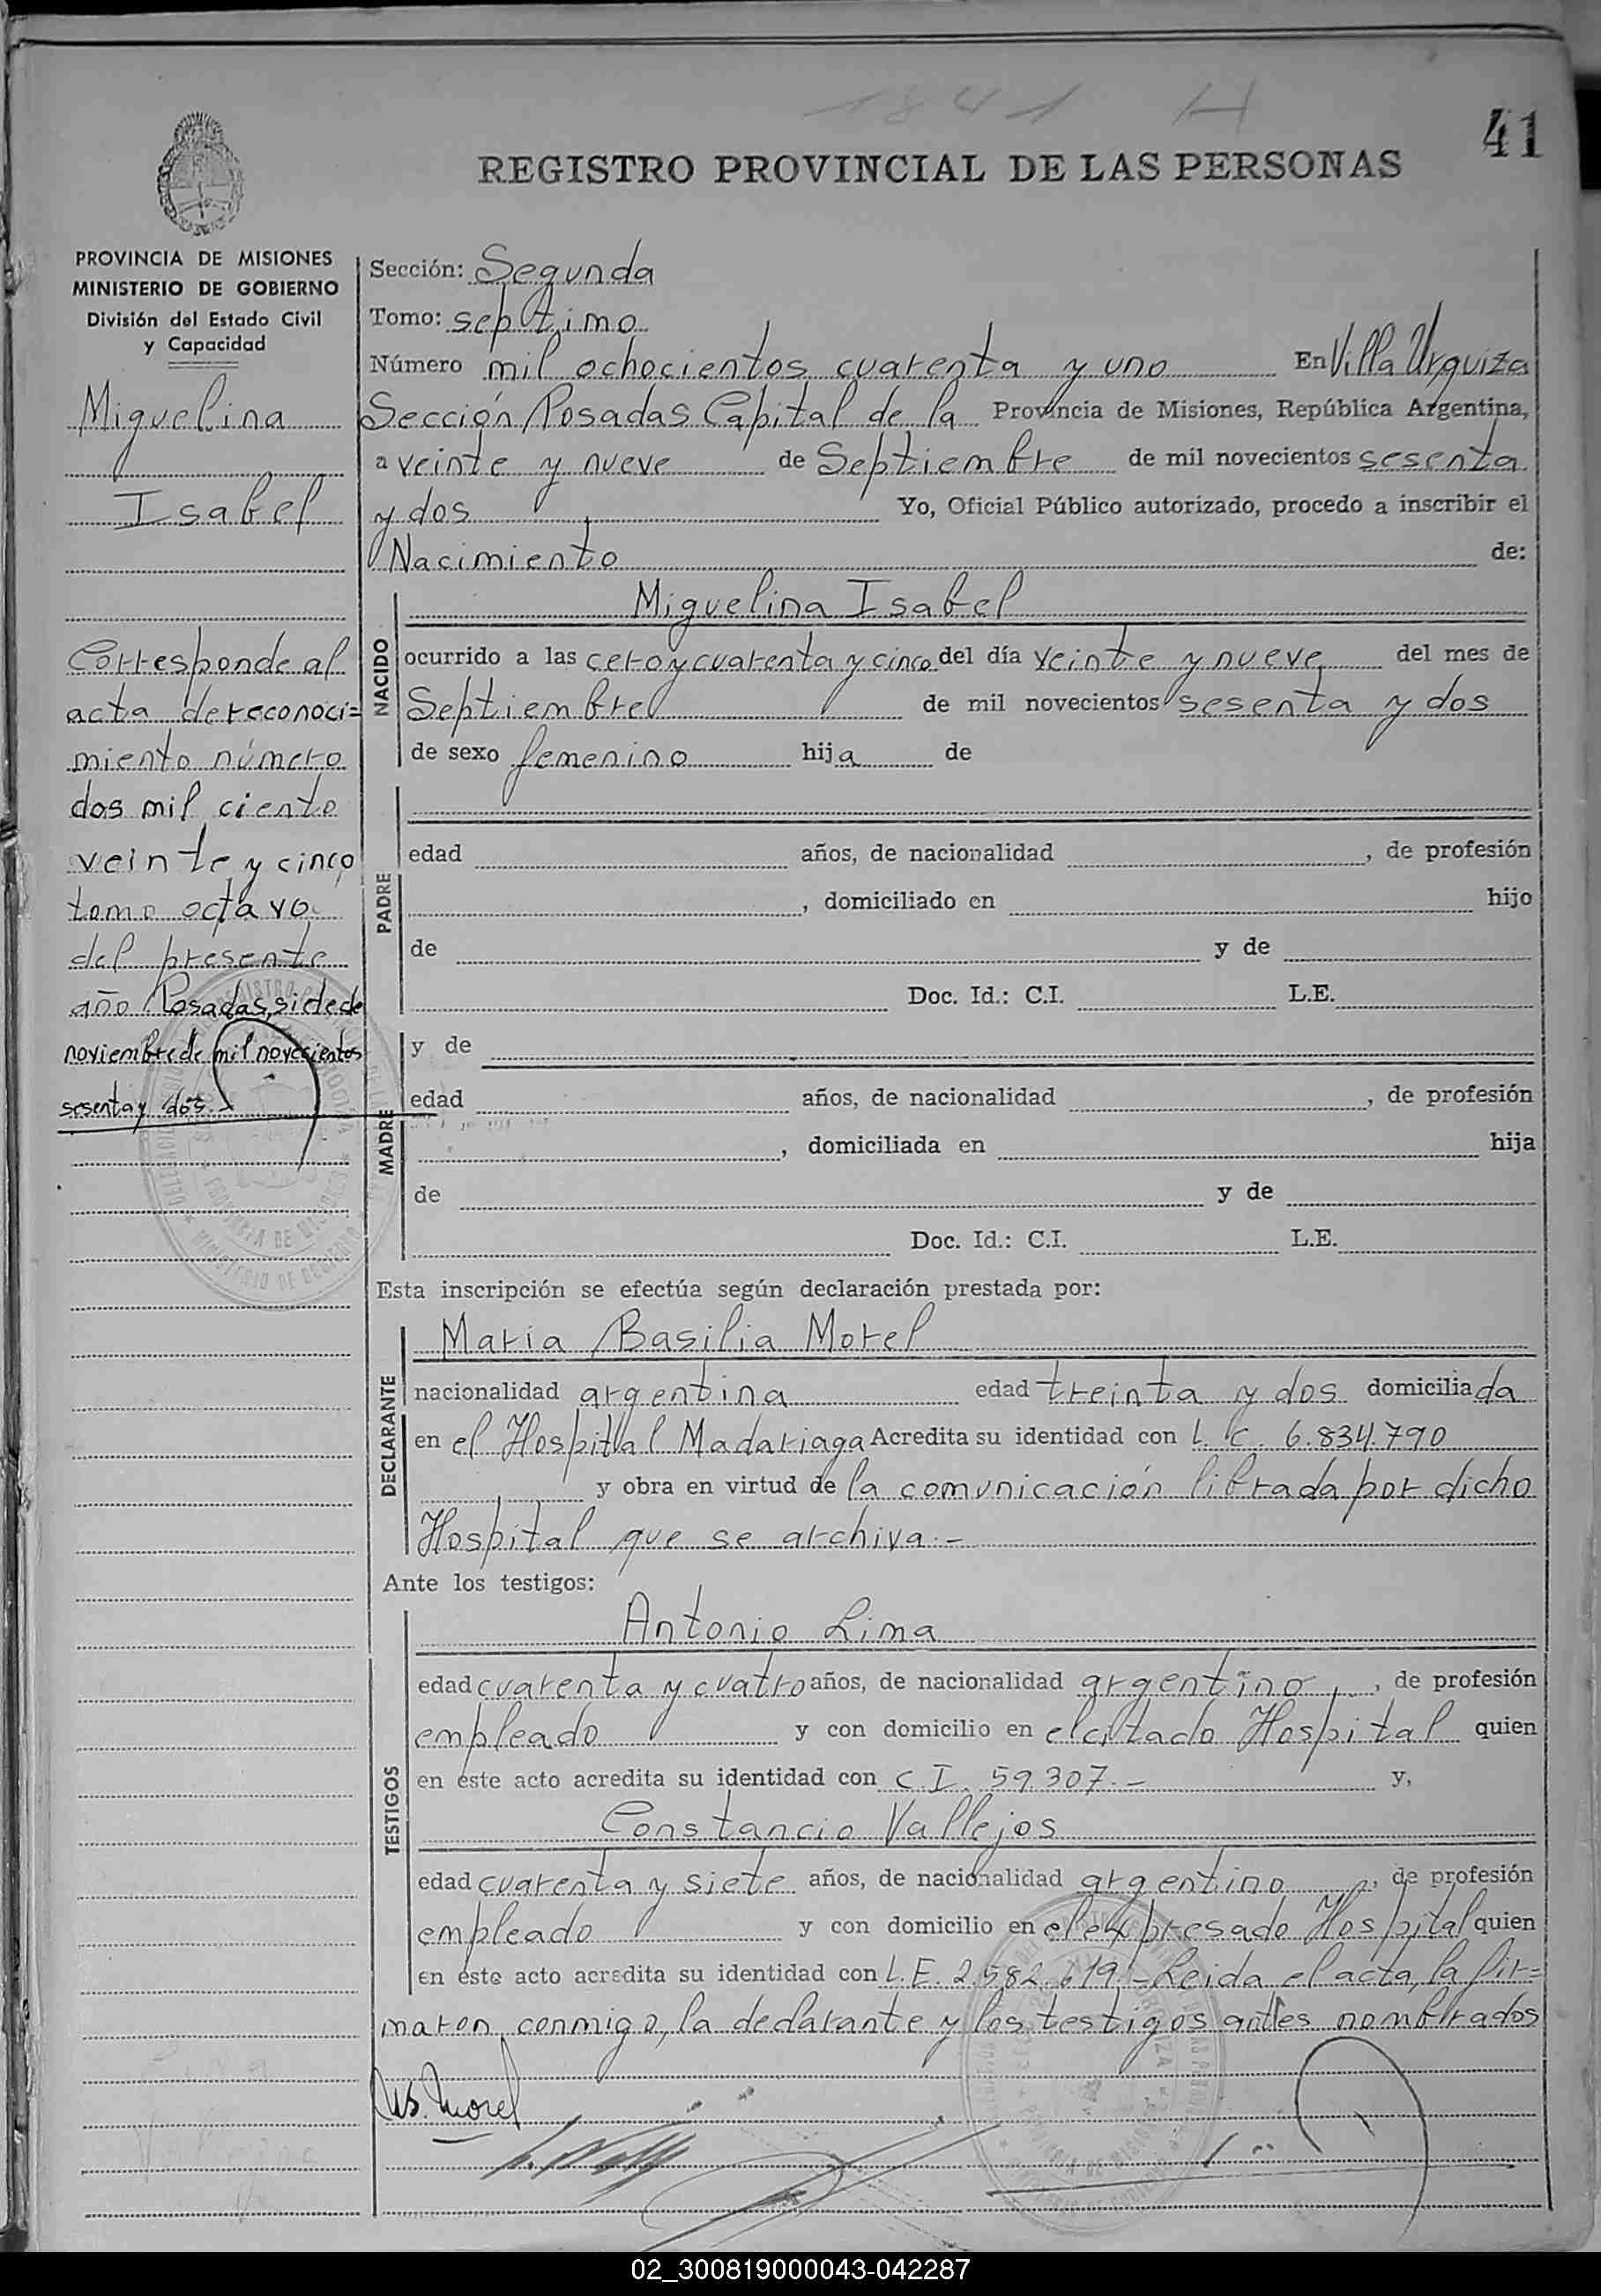 1841 H
41
REGISTRO PROVINCIAL DE LAS PERSONAS
PROVINCIA DE MISIONES
MINISTERIO DE GOBIERNO
División del Estado Civil
y Capacidad
Miguelina
Isabel
Corresponde al
acta de reconoci=
miento número
dos mil ciento
veinte y cinco
tomo octavo
del presente
año Posadas, siete de
noviembre de mil novecientos
sesenta y dos.
Sección: Segunda
Tomo: septimo
Número mil ochocientos cuarenta y uno En Villa Urquiza
Sección Posadas Capital de la Provincia de Misiones, República Argentina,
a veinte y nueve de Septiembre de mil novecientos sesenta
y dos Yo, Oficial Público autorizado, procedo a inscribir el
Nacimiento de:
Miguelina Isabel
NACIDO
ocurrido a las cero y cuarenta y cinco del día veinte y nueve del mes de
Septiembre de mil novecientos sesenta y dos
de sexo femenino hija de
PADRE
edad años, de nacionalidad , de profesión
, domiciliado en hijo
de y de
Doc. Id.: C.I. L.E.
MADRE
y de
edad años, de nacionalidad , de profesión
, domiciliada en hija
de y de
Doc. Id.: C.I. L.E.
Esta inscripción se efectúa según declaración prestada por:
DECLARANTE
Maria Basilia Morel
nacionalidad argentina edad treinta y dos domiciliada
en el Hospital Madariaga Acredita su identidad con L. C. 6.834.790
y obra en virtud de la comunicación librada por dicho
Hospital que se archiva.-
Ante los testigos:
TESTIGOS
Antonio Lima
edad cuarenta y cuatro años, de nacionalidad argentino, de profesión
empleado y con domicilio en el citado Hospital quien
en este acto acredita su identidad con C. I. 59.307.- y,
Constancio Vallejos
edad cuarenta y siete años, de nacionalidad argentino, de profesión
empleado y con domicilio en el expresado Hospital quien
en este acto acredita su identidad con L. E. 2.582.619.- Leida el acta, la fir=
maron conmigo, la declarante y los testigos antes nombrados
Morel
02_300819000043-042287